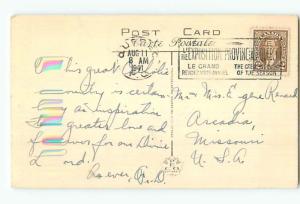 POST CARD
Carte Postale
QUEBEC
AUG 11
8 AM
L'EXPOSITION PROVINCIALE
LE GRAND THE GREAT
RENDEZ-VOUS ANNUEL OF THE SEASON
This great Catholic
Country is certain-
ly an inspiration
to greater love and
fervor for our Divine
Lord.
As ever, G.D.
Mr. & Mrs. Eugene Renard
Arcadia,
Missouri
U.S.A.